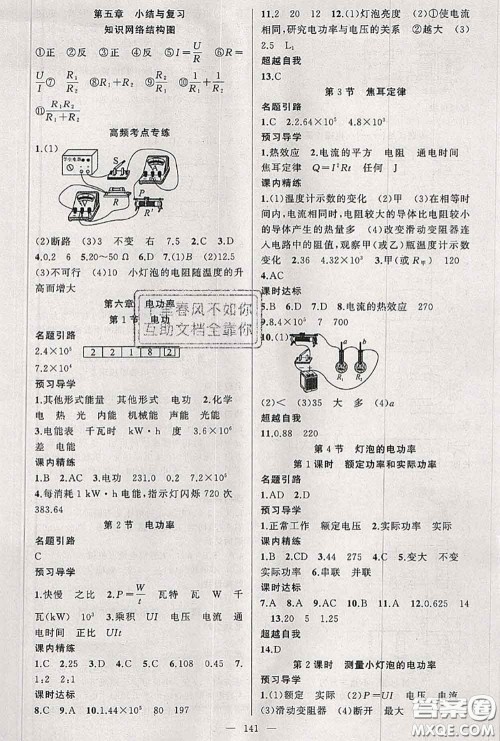 第五章 小结与复习
知识网络结构图
①正 ②反 ③正 ④反 ⑤I=U/R ⑥R=
U/I ⑦R₁/R₂ ⑧R₁+R₂ ⑨R₂/R₁ ⑩R₁/(R₁+R₂)
⑪R₁R₂/(R₁+R₂)
高频考点专练
1.(1)
S
R
R′
(2)断路 (3)3 不变 右 7.5 2.C 3.D
4.0.2 6 5.20~50 Ω 6.D 7.(1)5 10
(3)不可行 (4)10 小灯泡的电阻随温度的升
高而增大
第六章 电功率
第1节 电功
名题引路
2.4×10³ 2 2 1 8 2
预习导学
1.其他形式能量 其他形式 电功 2.化学
电 热 光 内能 机械能 声能 光能
3.电能表 千瓦时 kW·h 3.6×10⁶
差 电能
课内精练
1.C 2.AC 3.D 电功 2.2 7.2×10⁵
4.每消耗 1 kW·h 电能,指示灯闪烁 720 次
383.64
第2节 电功率
名题引路
C
预习导学
1.快慢 之比 2.P=W/t 瓦特 瓦 W 千
瓦(kW) 10³ 3.乘积 UI 电压 电流 通
电时间 正比 UIt
课内精练
1.C 2.25 3.D 4.C 5.D 6.0.5 1.2
课时达标
8.C 9.A 10.C 80 197
11.2 20 12 12.(1)灯泡亮度 (2)①使电流
相同,研究电功率与电压的关系 ②越大 (3)
2.5 L₁
超越自我
13.C
第3节 焦耳定律
名题引路
1.C 2.2.64×10⁵ 4.8×10³
预习导学
1.热效应 2.电流的平方 电阻 通电时间
焦耳定律 Q=I²Rt 任何 J
课内精练
1.(1)温度计示数的变化 (2)甲 (3)在相等时
间内,电流相同时,电阻较大的导体比电阻较小
的导体产生的热量多 (4)改变滑动变阻器连
入电路中的阻值,观察甲(或乙)瓶温度计示数
变化 2.C 3.D 4.C
7.AC
课时达标
5.B D 2.电流的热效应 270
10.(1)
R₁ R₂
(2)< (3)35 大 多 (4)a
超越自我
11.0.88 220
第4节 灯泡的电功率
第1课时 额定功率和实际功率
名题引路
1.AD 2.D
预习导学
1.正常工作 额定电压 2.实际功率 实际
课内精练
1.B 2.0.34 275 3.C 4.C 5.变大 不变
实际功率 6.串联 并联
课时达标
7.A 8.A 9.A 10.B 11.A 12.0.625 14
13.20 5 1.25
超越自我
14.D
第2课时 测量小灯泡的电功率
预习导学
1.(1)额定 实际 (2)P=UI 电压 电流
(3)滑动变阻器 (4)断开 最大
141
春风不如你
互助文档全靠你
答案圈
MXQE.COM